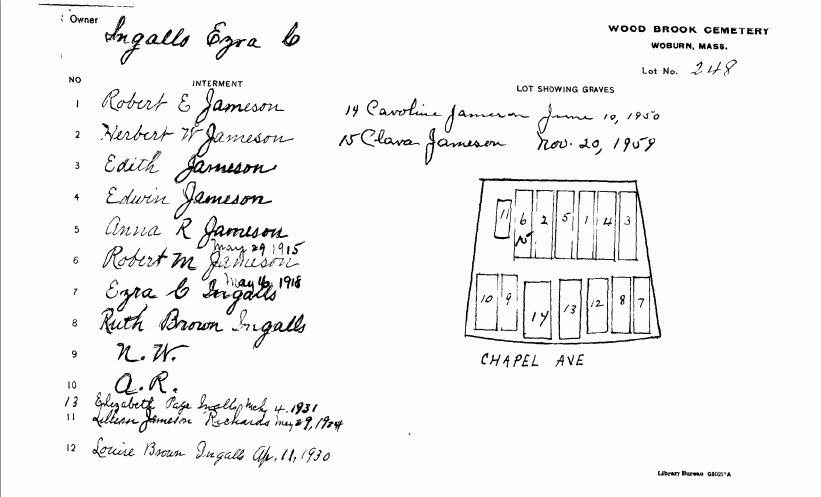 Owner
Ingalls Ezra C
WOOD BROOK CEMETERY
WOBURN, MASS.
Lot No. 248
NO INTERMENT
LOT SHOWING GRAVES
1 Robert E Jameson
2 Herbert W Jameson
3 Edith Jameson
4 Edwin Jameson
5 Anna R Jameson
May 29 1915
6 Robert M Jameson
May 16, 1918
7 Ezra C Ingalls
8 Ruth Brown Ingalls
9 N. W.
10 A. R.
13 Elizabeth Page Ingalls, Mch 4. 1931
11 Lillian Jameson Richards May 29, 1924
12 Louise Brown Ingalls Ap. 11, 1930
14 Caroline Jameson June 10, 1950
15 Clara Jameson Nov. 20, 1959
11 6 2 5 1 4 3
15
10 9 14 13 12 8 7
CHAPEL AVE
Library Bureau